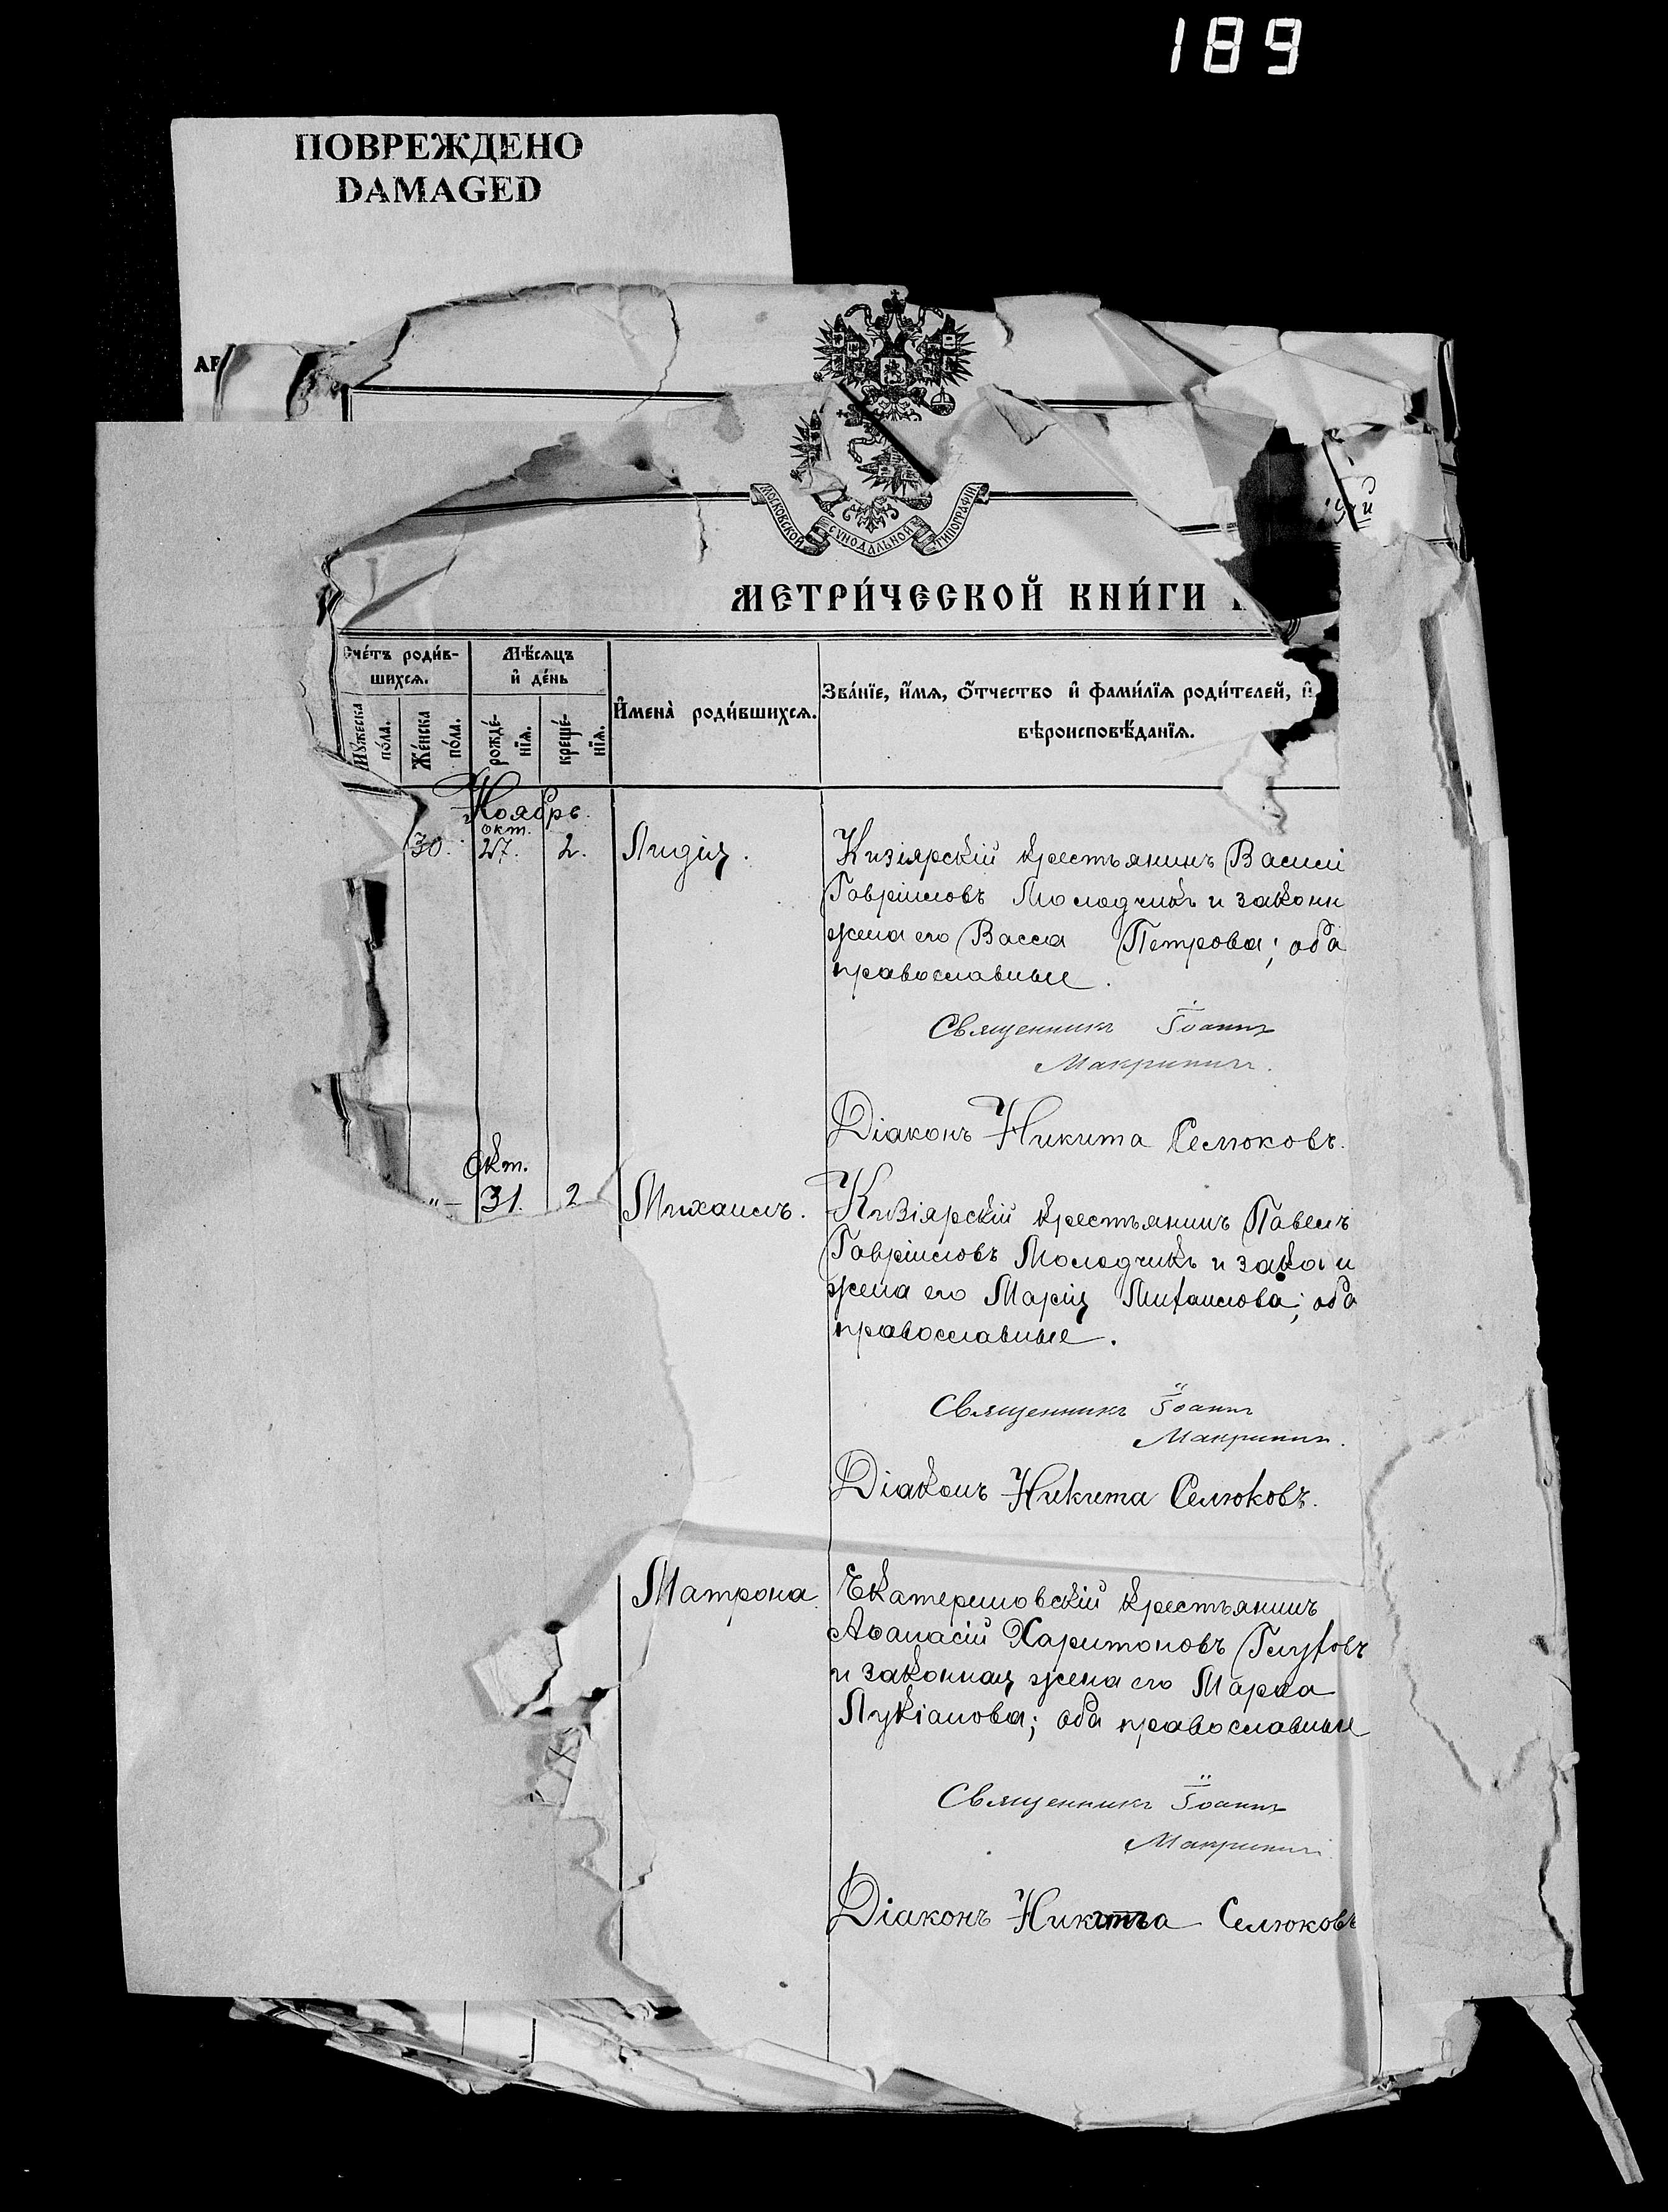 189
ПОВРЕЖДЕНО
DAMAGED
АР
МОСКОВСКОЙ СУНОДАЛЬНОЙ ТИПОГРАФІИ
МЕТРИ́ЧЕСКОЙ КНИ́ГИ
Счéтъ роди́в-
шихся.
Мѣ́сяцъ
и҆ дéнь
Мꙋ́жеска
пóла.
Жéнска
пóла.
рождé-
нїя.
крещé-
нїя.
И҆менà роди́вшихся.
Звáнїе, и҆́мя, ѻ҆́тчество и҆ фами́лїя роди́телей, и҆
вѣроисповѣ́данїя.
Ноябрь.
окт.
30. 27. 2. Лидія. Кизіярскій крестьянинъ Василі
Гавріиловъ Молодчикъ и законн
жена его Васса Петрова; оба
православные.
Священникъ Іоаннъ
Макринич.
Діаконъ Никита Селюковъ.
Окт.
"— 31. 2 Михаилъ. Кизіярскій крестьянинъ Павелъ
Гавріиловъ Молодчикъ и зако и
жена его Марія Михаилова; оба
православные.
Священникъ Іоаннъ
Макринич.
Діаконъ Никита Селюковъ.
Матрона. Екатериновскій крестьянинъ
Аѳанасій Харитоновъ Глуховъ
и законная жена его Марѳа
Лукіанова; оба православные
Священникъ Іоаннъ
Макринич
Діаконъ Никита Селюковъ